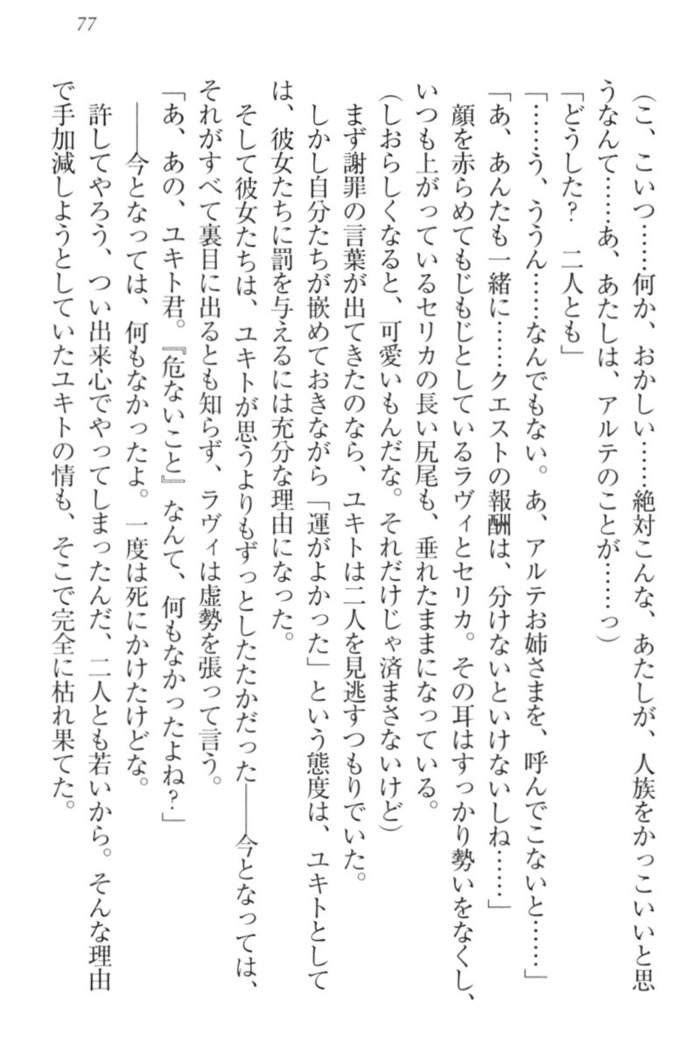 77
(こ、こいつ……何か、おかしい……絶対こんな、あたしが、人族をかっこいいと思
うなんて……あ、あたしは、アルテのことが……っ)
「どうした?　二人とも」
「……う、ううん……なんでもない。あ、アルテお姉さまを、呼んでこないと……」
「あ、あんたも一緒に……クエストの報酬は、分けないといけないしね……」
　顔を赤らめてもじもじとしているラヴィとセリカ。その耳はすっかり勢いをなくし、
いつも上がっているセリカの長い尻尾も、垂れたままになっている。
(しおらしくなると、可愛いもんだな。それだけじゃ済まさないけど)
　まず謝罪の言葉が出てきたのなら、ユキトは二人を見逃すつもりでいた。
　しかし自分たちが嵌めておきながら「運がよかった」という態度は、ユキトとして
は、彼女たちに罰を与えるには充分な理由になった。
　そして彼女たちは、ユキトが思うよりもずっとしたたかだった――今となっては、
それがすべて裏目に出るとも知らず、ラヴィは虚勢を張って言う。
「あ、あの、ユキト君。『危ないこと』なんて、何もなかったよね?」
　――今となっては、何もなかったよ。一度は死にかけたけどな。
　許してやろう、つい出来心でやってしまったんだ、二人とも若いから。そんな理由
で手加減しようとしていたユキトの情も、そこで完全に枯れ果てた。